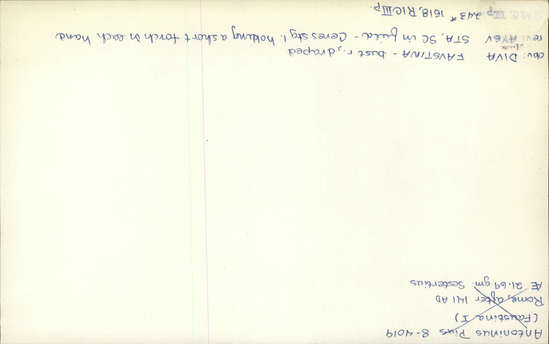 Antoninus Pius 8-4019
(Faustina I)
Rome, after 141 AD
Æ 21.69 gm. Sestertius
obv: DIVA FAVSTINA - bust r., draped
rev: AVGV STA, SC in field - Ceres stg. l. holding a short torch in each hand
p. 243 # 1518, RIC III p.